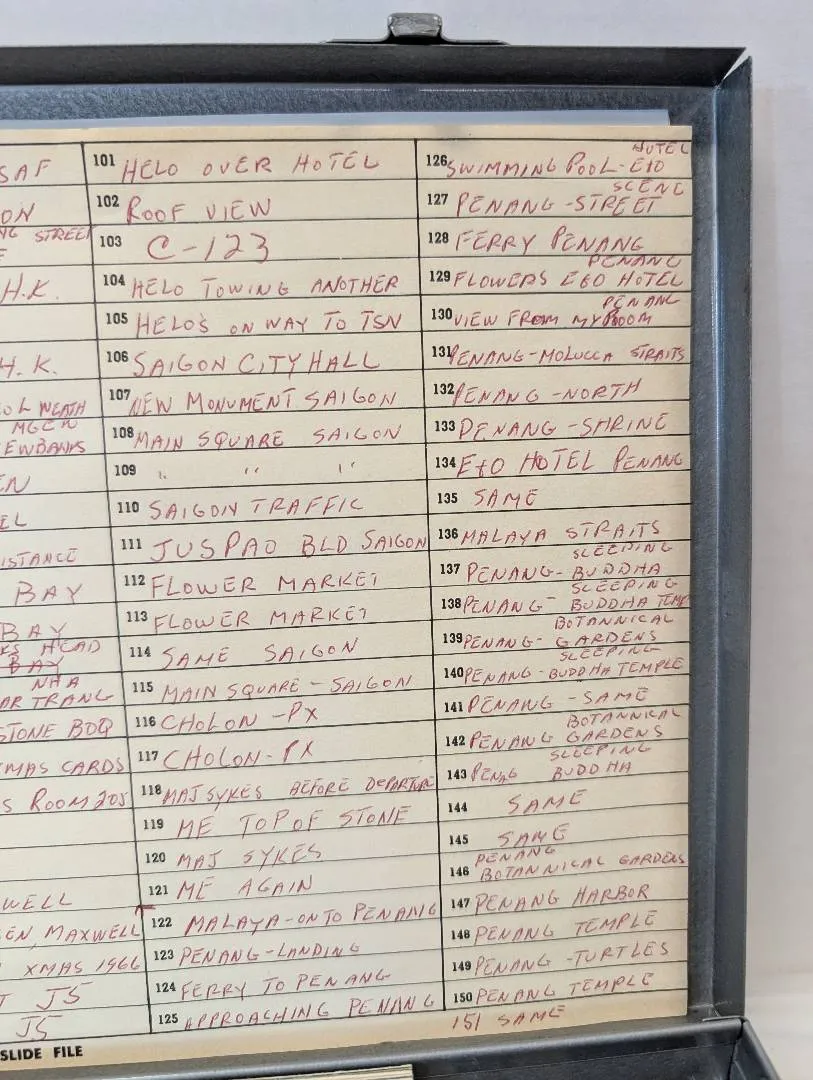 SAF
ON
STREET
H.K.
H.K.
OL WEATH
MGEN
EWBANKS
EN
EL
ISTANCE
BAY
BAY
KS HEAD
BAY
NHA
AR TRANG
STONE BOQ
MAS CARDS
S ROOM 205
WELL
EN, MAXWELL
XMAS 1966
T JS
JS
SLIDE FILE
101 HELO OVER HOTEL
102 ROOF VIEW
103 C-123
104 HELO TOWING ANOTHER
105 HELO'S ON WAY TO TSN
106 SAIGON CITY HALL
107 NEW MONUMENT SAIGON
108 MAIN SQUARE SAIGON
109 " " "
110 SAIGON TRAFFIC
111 JUSPAO BLD SAIGON
112 FLOWER MARKET
113 FLOWER MARKET
114 SAME SAIGON
115 MAIN SQUARE - SAIGON
116 CHOLON - PX
117 CHOLON - PX
118 MAJ SYKES BEFORE DEPARTURE
119 ME TOP OF STONE
120 MAJ SYKES
121 ME AGAIN
122 MALAYA - ON TO PENANG
123 PENANG - LANDING
124 FERRY TO PENANG
125 APPROACHING PENANG
HOTEL
126 SWIMMING POOL - E&O
SCENE
127 PENANG - STREET
128 FERRY PENANG
PENANG
129 FLOWERS E&O HOTEL
PENANG
130 VIEW FROM MY ROOM
131 PENANG - MOLUCCA STRAITS
132 PENANG - NORTH
133 PENANG - SHRINE
134 E&O HOTEL PENANG
135 SAME
136 MALAYA STRAITS
SLEEPING
137 PENANG - BUDDHA
SLEEPING
138 PENANG - BUDDHA TEMP
BOTANNICAL
139 PENANG - GARDENS
SLEEPING
140 PENANG - BUDDHA TEMPLE
141 PENANG - SAME
BOTANNICAL
142 PENANG GARDENS
SLEEPING
143 PENAG BUDDHA
144 SAME
145 SAME
PENANG
146 BOTANNICAL GARDENS
147 PENANG HARBOR
148 PENANG TEMPLE
149 PENANG - TURTLES
150 PENANG TEMPLE
151 SAME